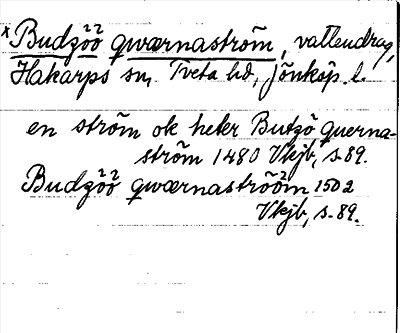 x Budzöö qwærnaström, vattendrag,
Hakarps sn, Tveta hd, Jönköp. l.
en ström ok heter Butzö querna-
ström 1480 Vkjb, s. 89.
Budzöö qwærnaströöm 1502
Vkjb, s. 89.